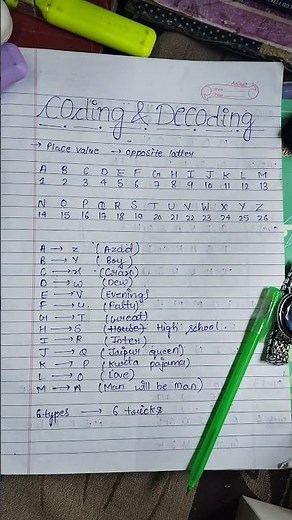 Coding & Decoding
→ Place value → opposite latter
A B C D E F G H I J K L M
1 2 3 4 5 6 7 8 9 10 11 12 13
N O P Q R S T U V W X Y Z
14 15 16 17 18 19 20 21 22 23 24 25 26
A → Z (Azad)
B → Y (Boy)
C → X (Crax)
D → W (Dew)
E → V (Evening)
F → U (Fatty)
G → T (Great)
H → S (House) High school
I → R (Inter)
J → Q (Jaipur queen)
K → P (Kurta pajama)
L → O (Love)
M → N (Man will be man)
6 types → 6 tricks